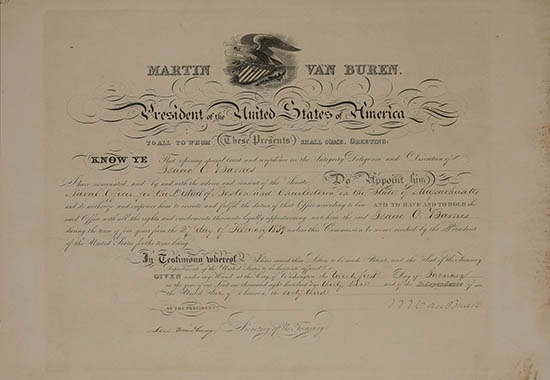 MARTIN VAN BUREN.
President of the United States of America
TO ALL TO WHOM These Presents SHALL COME, GREETING:
KNOW YE That reposing special trust and confidence in the Integrity Diligence and Discretion of
Isaac O Barnes
I have nominated, and by and with the advice and consent of the Senate Do Appoint him
Naval Officer for the District of Boston and Charlestown in the State of Massachusetts
and do authorize and empower him to execute and fulfil the duties of that Office according to law AND TO HAVE AND TO HOLD the
said Office with all the rights and emoluments thereunto legally appertaining unto him the said Isaac O Barnes
during the term of four years from the day of 1839 unless this Commission be sooner revoked by the President
of the United States for the time being
In Testimony whereof I have caused these Letters to be made Patent, and the Seal of the Treasury
Department of the United States to be hereunto affixed
GIVEN under my Hand at the City of Washington the Day of
in the year of our Lord one thousand eight hundred and thirty and of the Independence of
the United States of America the sixty third
BY THE PRESIDENT
M Van Buren
Levi Woodbury Secretary of the Treasury